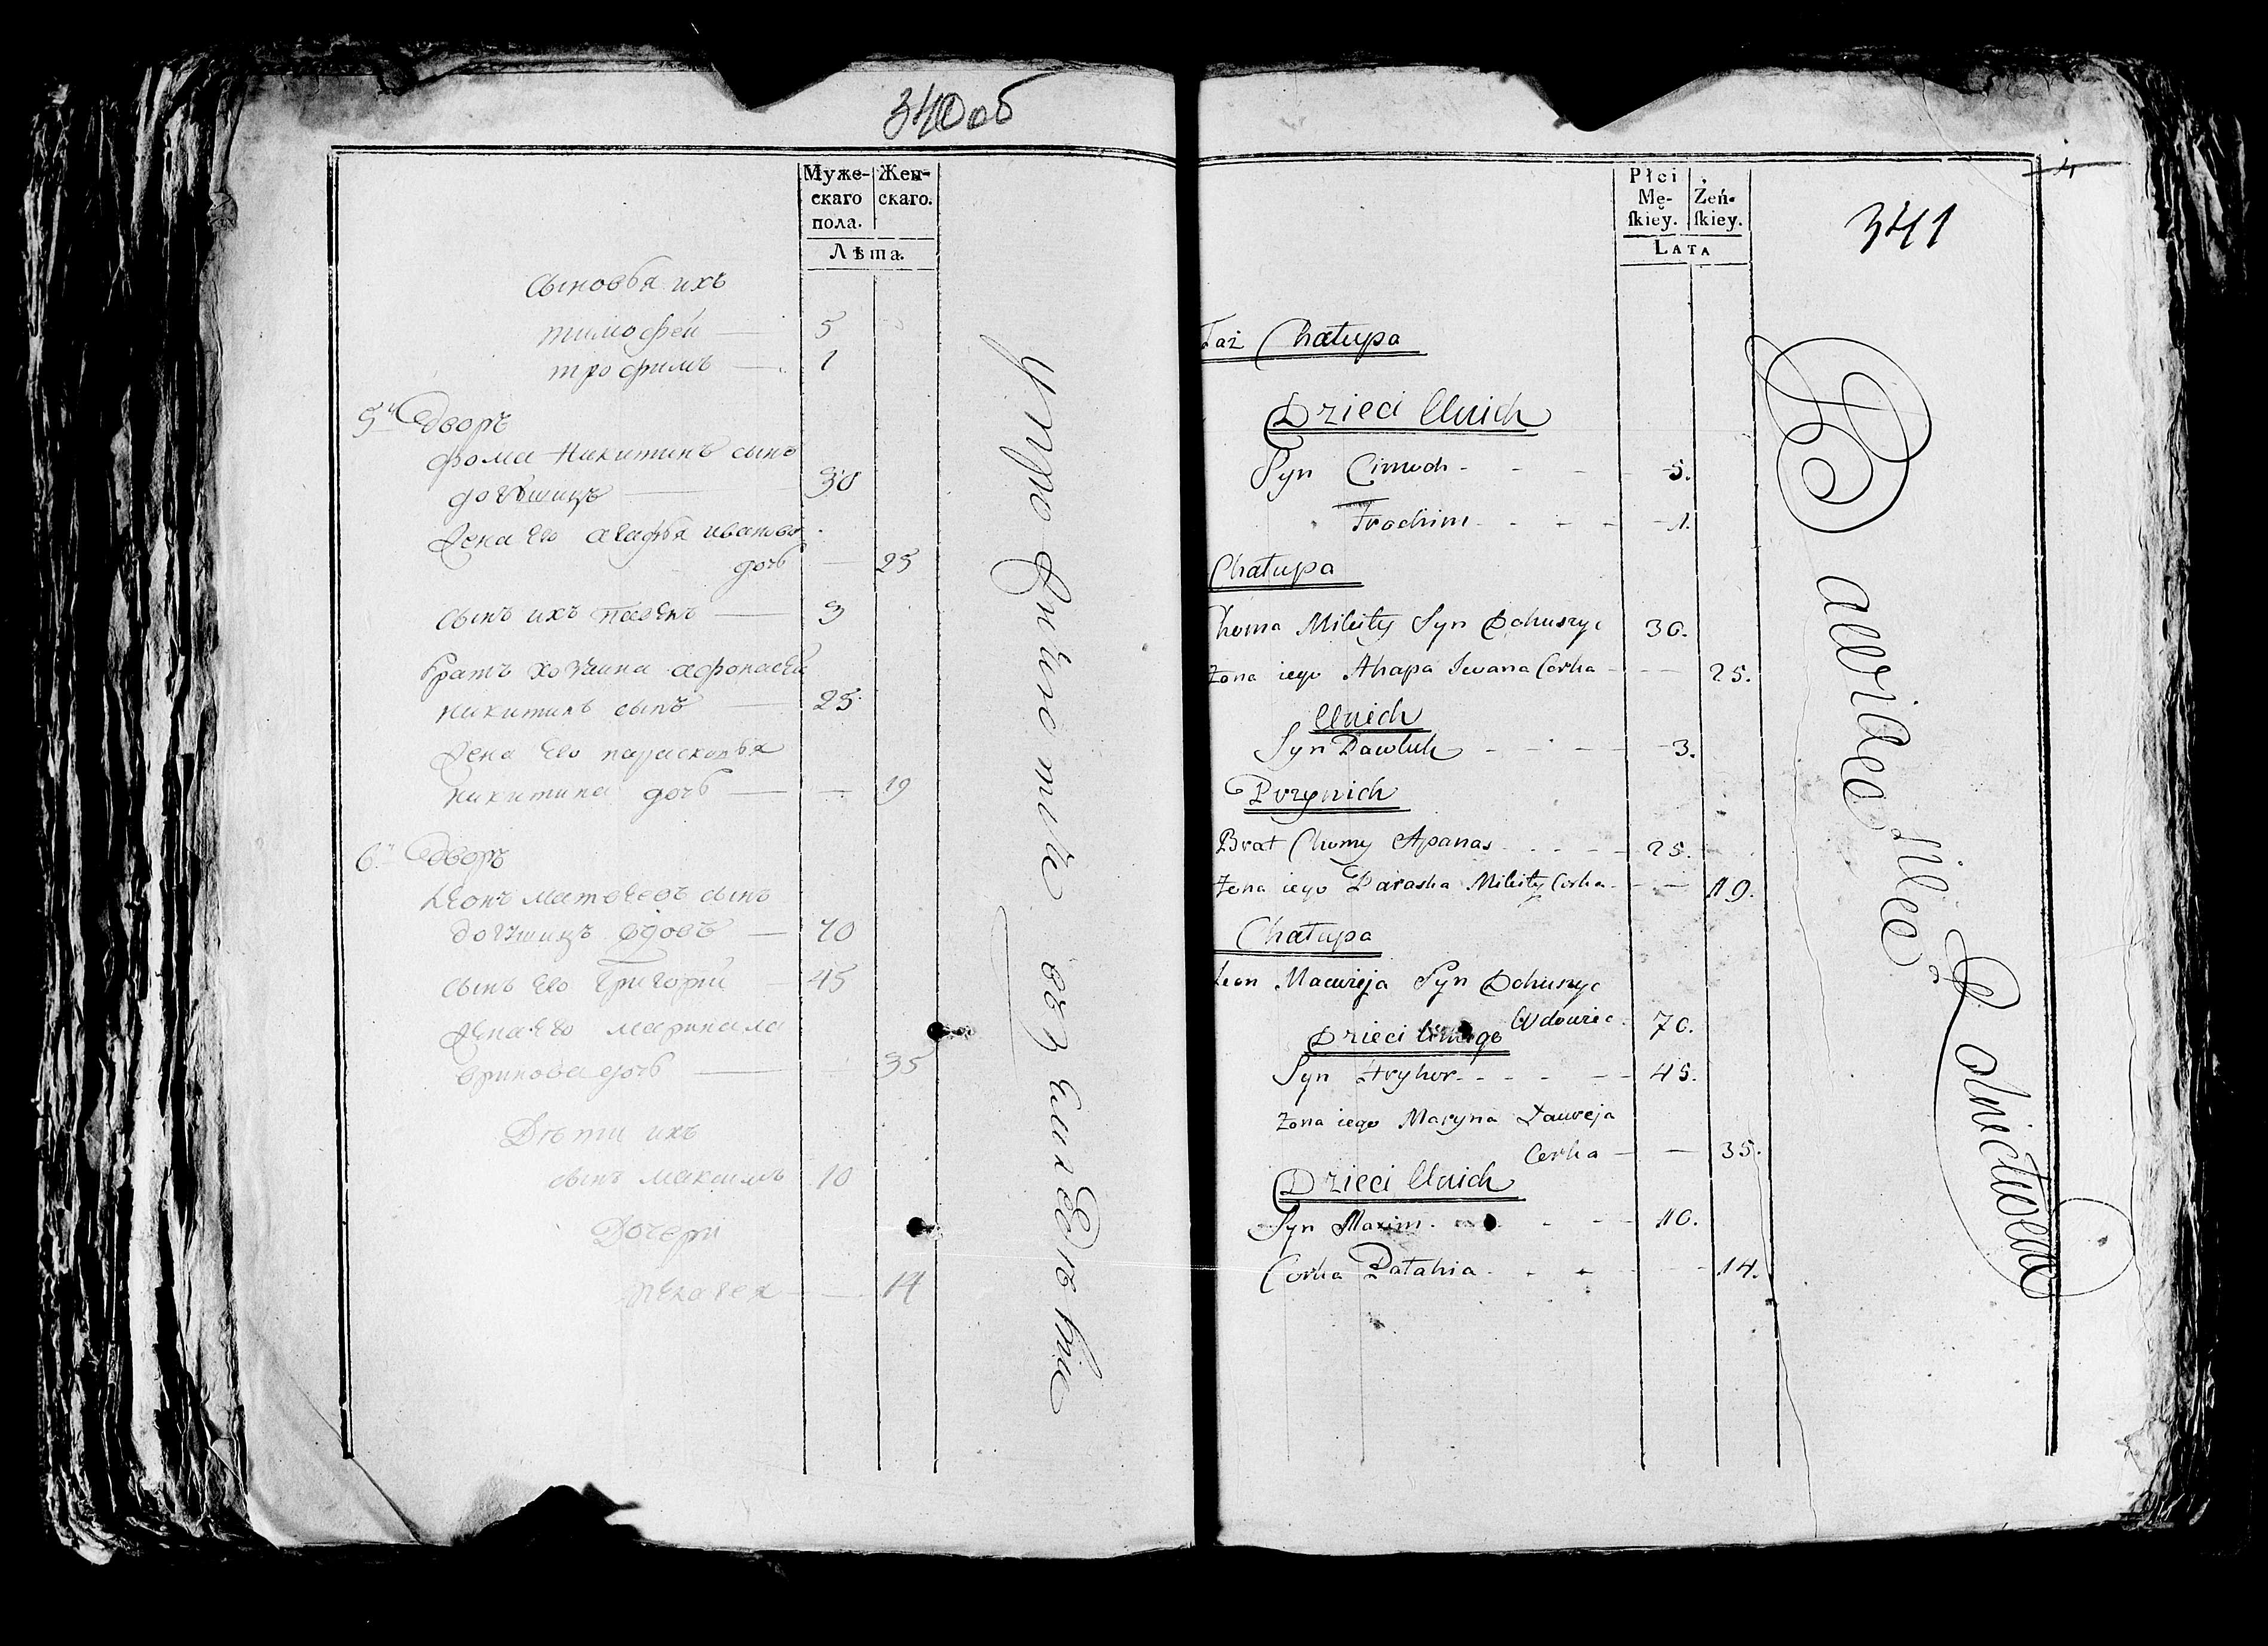 340об
Муже-
скаго
пола.
Жен-
скаго.
Лѣта.
Сыновья ихъ
тимофей — 5
трофимъ — 1
5й Дворъ
фома Никитинъ сынъ
30
Жена его агафья иванова
дочь — 25
сынъ ихъ — 3
братъ хозяина афонасей
никитинъ сынъ — 25
Жена его парасковья
никитина дочь — — 19
6й Дворъ
Леонъ матвеевъ сынъ
вдовъ — 70
сынъ его Григорий — 45
Жена его марина ла
вринова дочь — — 35
Дѣти ихъ
сынъ максимъ 10
Дочери
пелагея — — 14
упражняются въ земледелии
341
Płci
Mę-
skiey.
Żeń-
skiey.
LATA
Taż Chałupa
Dzieci Unich
Syn Cimoch - - - - 5.
Trochim - - - - 1.
Chałupa
Choma Mikity Syn Bohuszyc 30.
Żona iego Ahapa Iwana Corka - - - 25.
Unich
Syn Pawluk - - - - 3.
Przynich
Brat Chomy Apanas - - - - 25.
Żona iego Paraska Mikity Corka - - - 19.
Chałupa
Leon Macwieja Syn Bohuszyc
Wdowiec - 70.
Dzieci Uniego
Syn Hryhor - - - - 45.
Żona iego Maryna Ławreja
Corka - - 35.
Dzieci Unich
Syn Maxim - - - 10.
Corka Pałahia - - - - - 14.
Rolnictwem